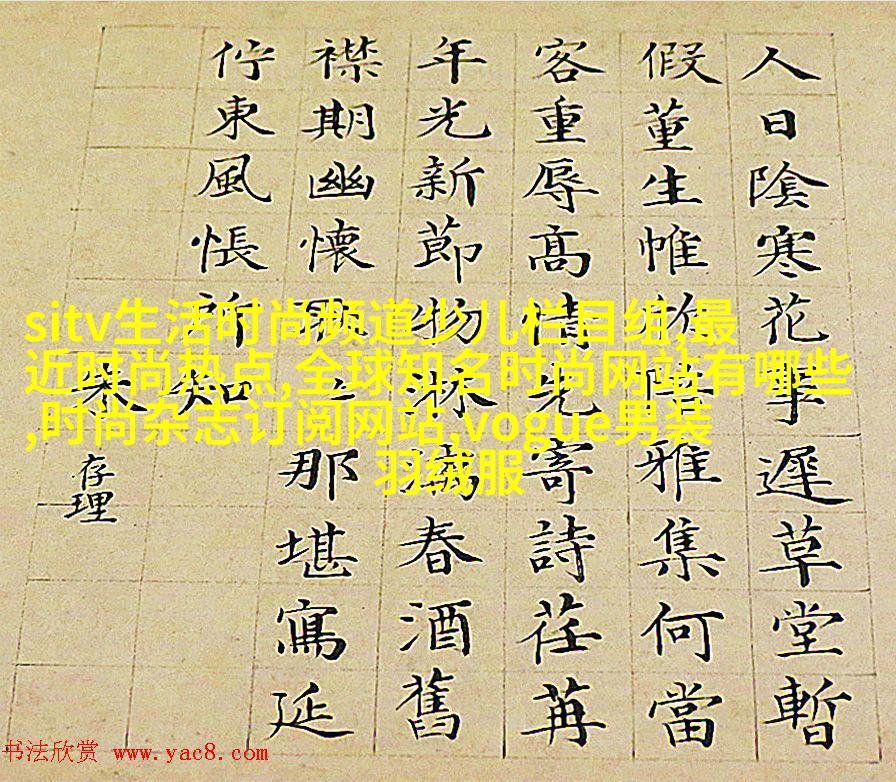 人日陰寒花事遲草堂暫
假董生帷陪雅集何當
客重辱高情先寄詩荏苒
年光新節物淋漓春酒舊
襟期幽懷飄〻那堪寫延
佇東風悵所知
朱存理
sitv生活时尚频道少儿栏目组,最
近时尚热点,全球知名时尚网站有哪些
,时尚杂志订阅网站,vogue男装
羽绒服”
书法欣赏 www.yac8.com